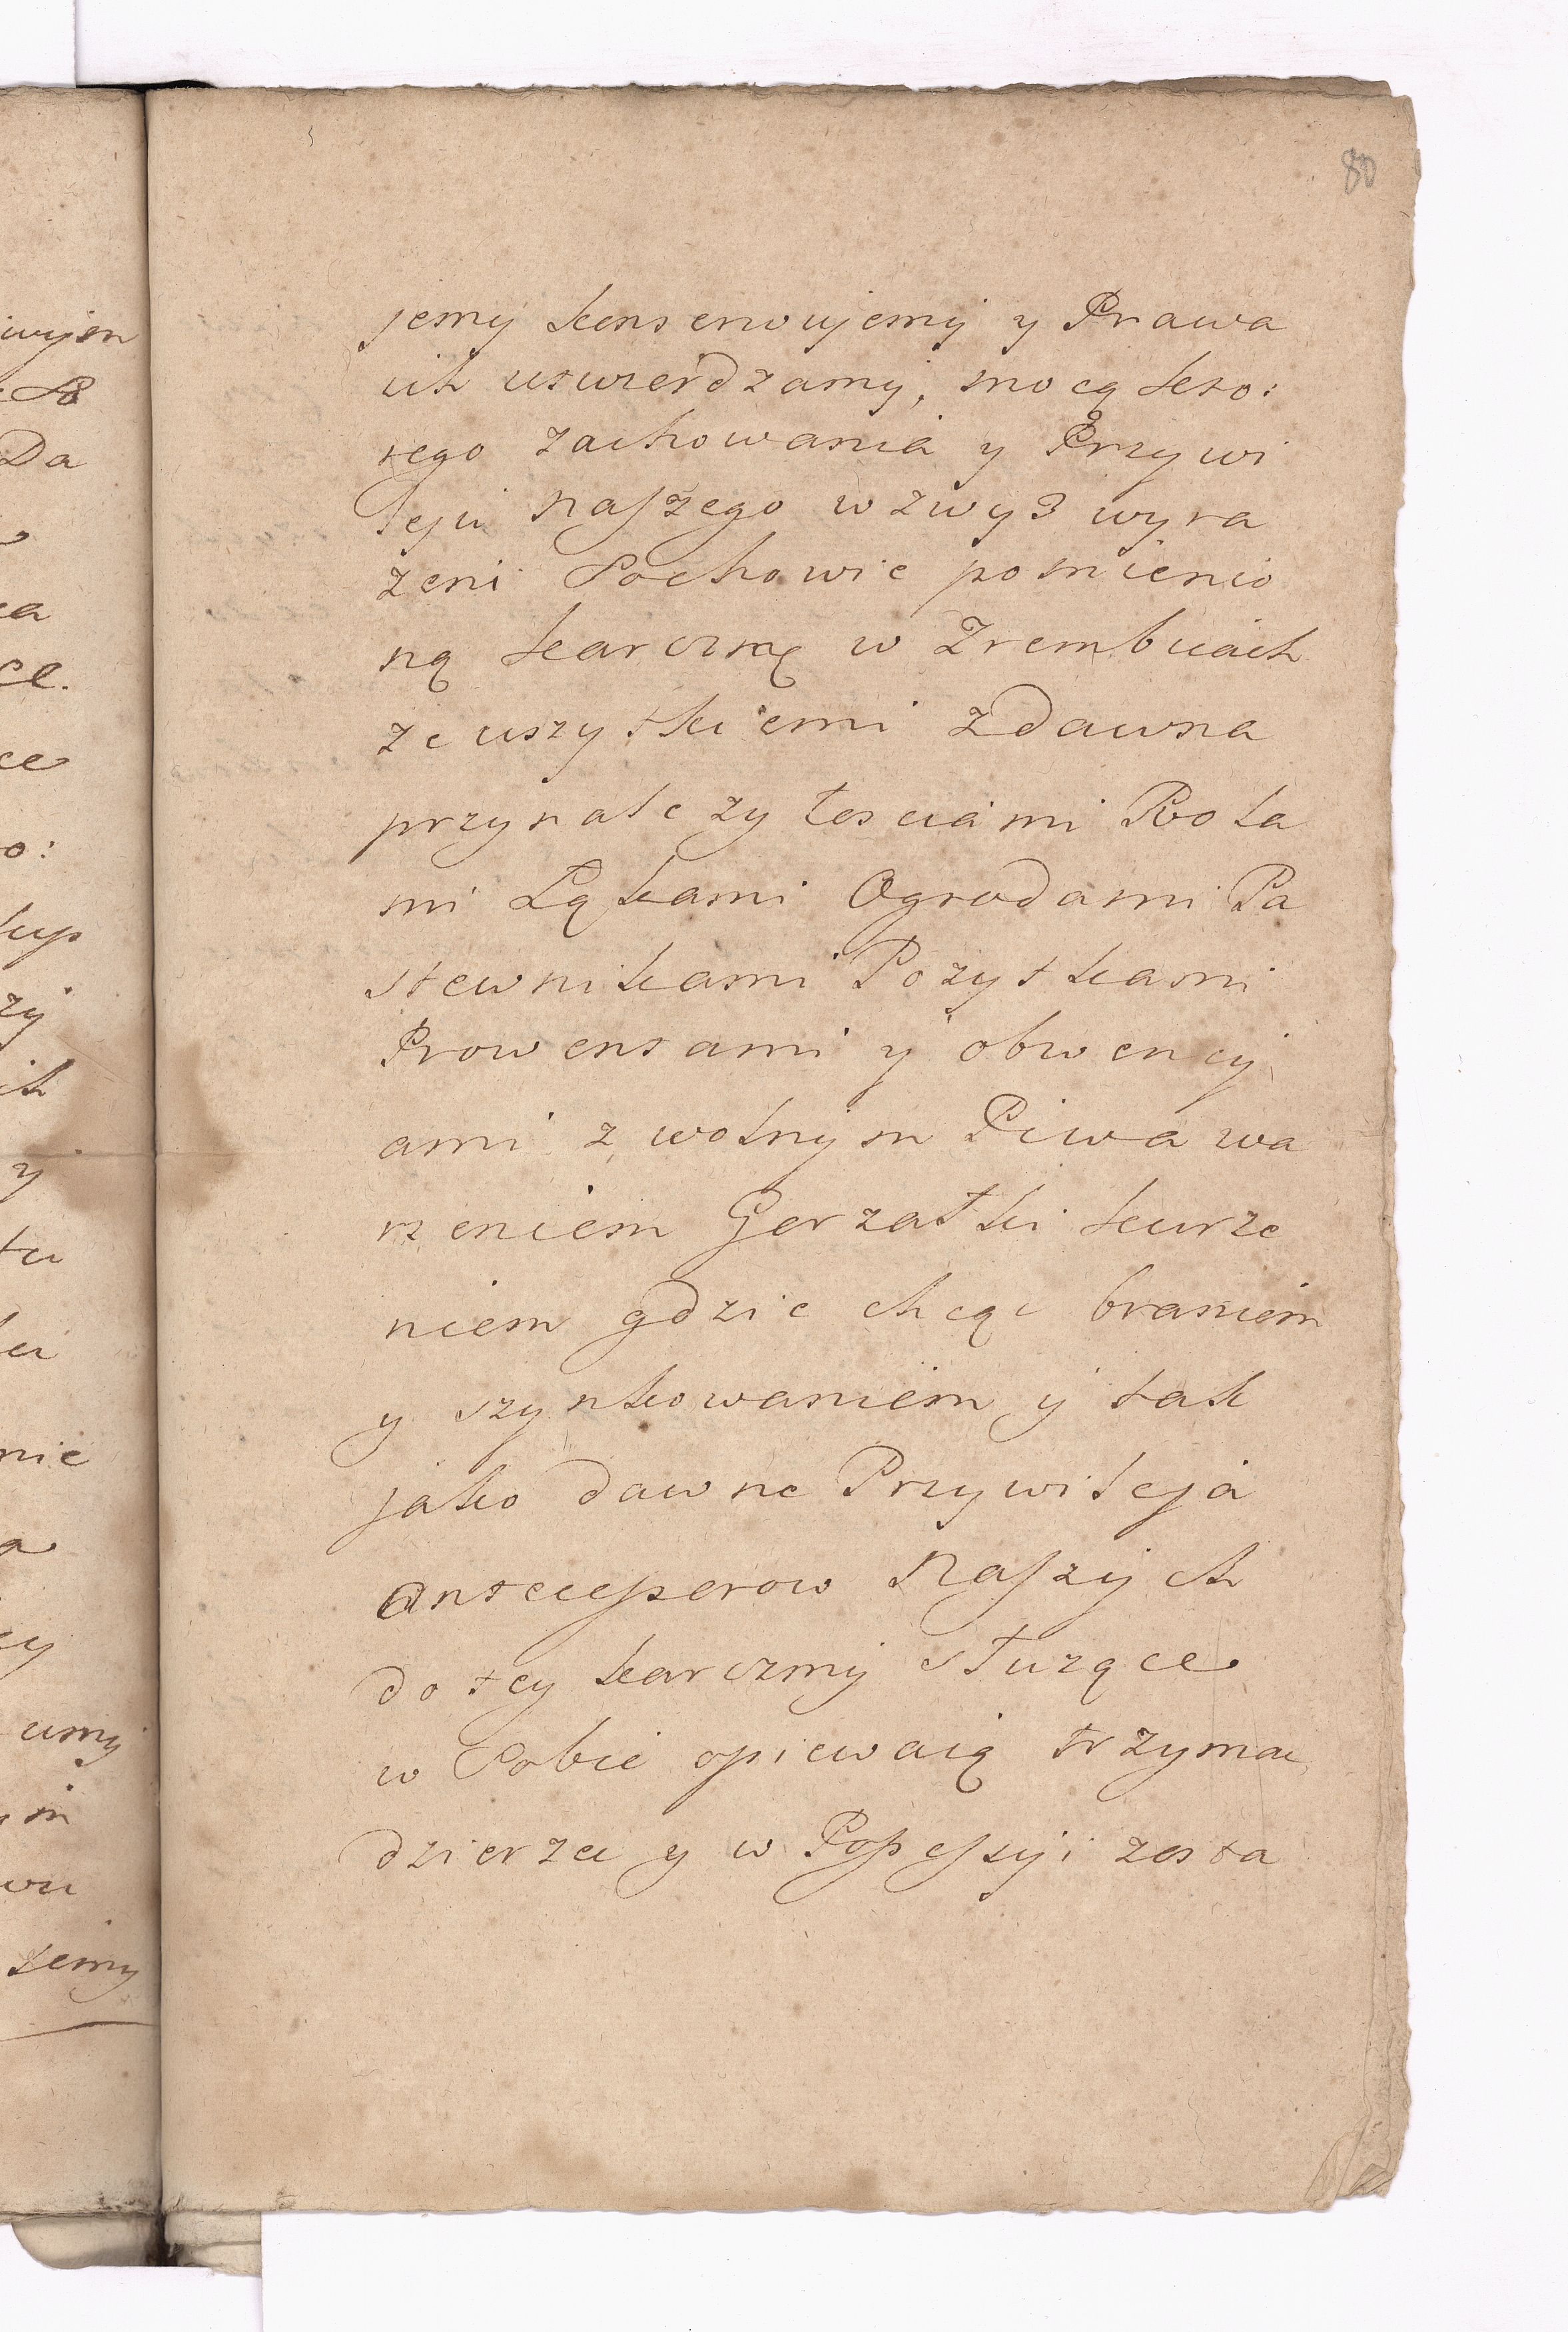 80
jemy konserwujemy y Prawa
ich utwierdzamy, mocą kto:
rego zachowania y Przywi
leju naszego wzwyż wyra
żeni Sochowie pomienio
ną karczmę w Zrembicach
ze wszytkiemi zdawna
przynależytościami Rola
mi Łąkami Ogrodami Pa
stewnikami Pożytkami
Prowentami y obwencyj
ami z wolnym Piwa wa
rzeniem Gorzałki kurze
niem gdzie chcąc braniem
y szynkowaniem y tak
jako dawne Przywileja
Antecessorow Naszych
do tey karczmy służące
w Sobie opiewaią trzymac
dzierzec y w Possessyi zosta
iwym
Da
ca
ce
o:
kup
zy
ich
y
tu
nie
a
cy
umy
wu
temy